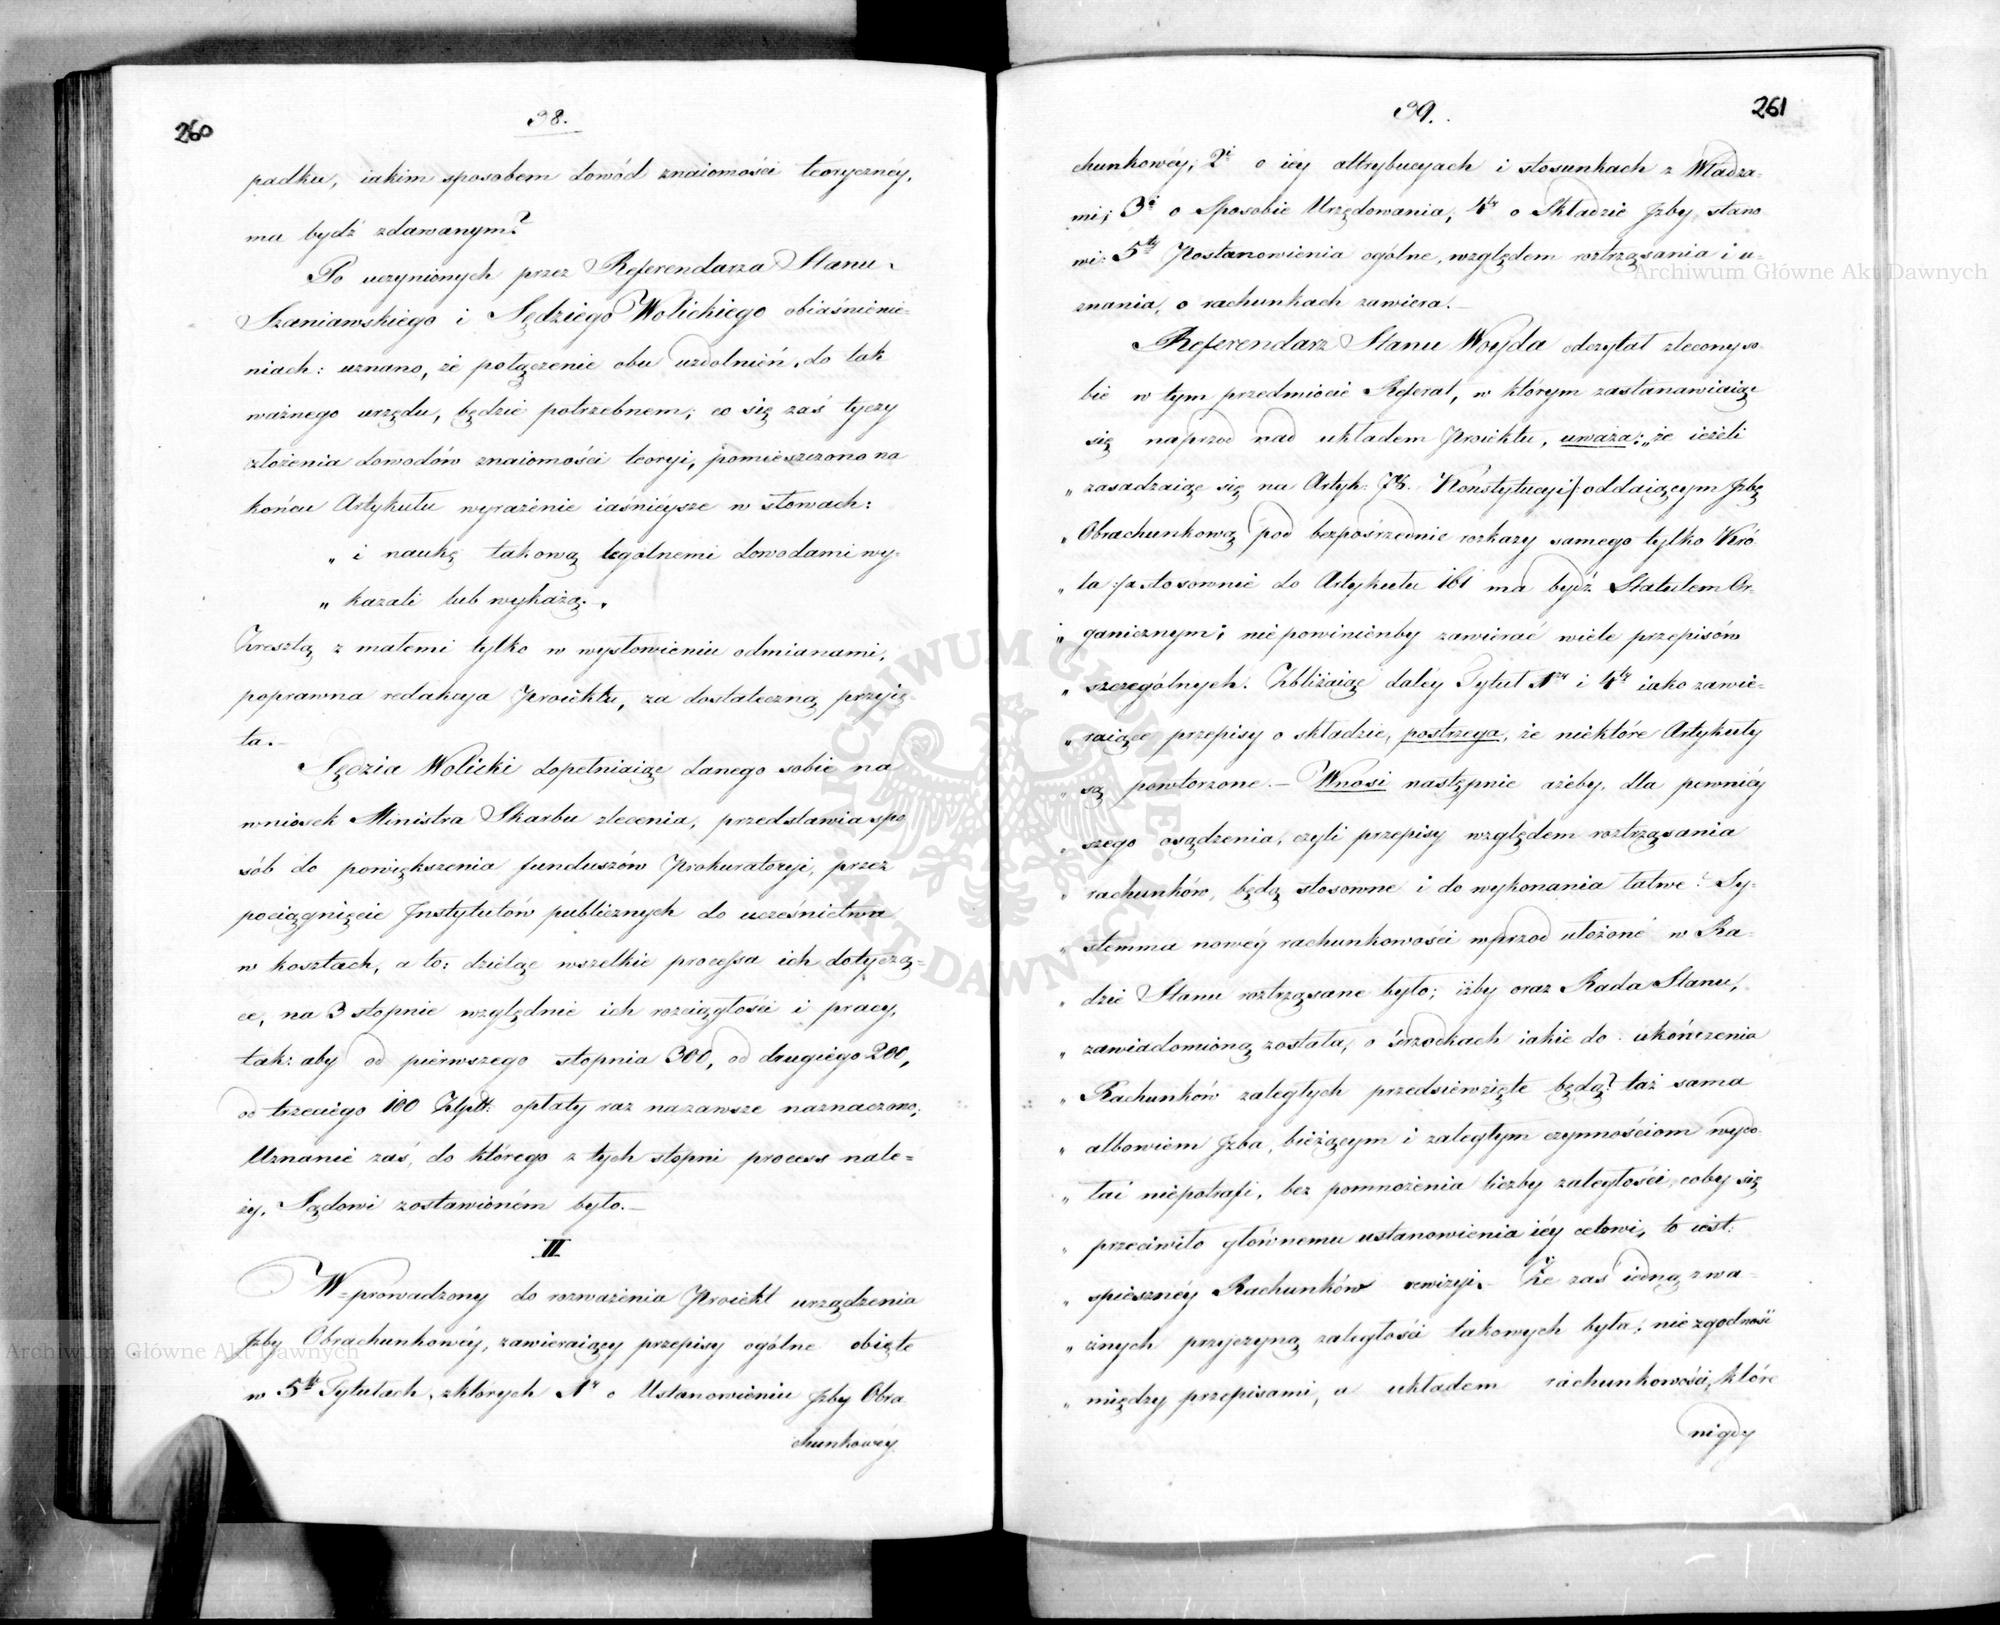 260
38.
padku, iakim sposobem dowód znaiomości teorycznéy,
ma bydź zdawanym?
Po uczynionych przez Referendarza Stanu
Szaniawskiego i Sędziego Wolickiego obiaśnienie-
niach: uznano, że połączenie obu uzdolnień, do tak
ważnego urzędu, będzie potrzebnem; co się zaś tyczy
złożenia dowodów znaiomości teoryi, pomieszczono na
końcu Artykułu wyrażenie iaśniéysze w słowach:
„ i naukę takową legalnemi dowodami wy-
„ kazali lub wykażą.„
Zresztą z małemi tylko w wysłowieniu odmianami,
poprawna redakcya Proiektu, za dostateczną przyię-
ta.—
Sędzia Wolicki dopełniaiąc danego sobie na
wniosek Ministra Skarbu zlecenia, przedstawia spo
sób do powiększenia funduszów Prokuratoryi, przez
pociągnięcie Instytutów publicznych do uczésnictwa
w kosztach, a to: dzieląc wszelkie processa ich dotyczą-
ce, na 3 stopnie względnie ich rozciągłości i pracy,
tak: aby od pierwszego stopnia 300, od drugiego 200,
od trzeciego 100 Złpol: opłaty raz nazawsze naznaczono;
Uznanie zaś, do którego z tych stopni process nale-
ży, Sądowi zostawioném było.—
II
W-prowadzony do rozważenia Proiekt urządzenia
Izby Obrachunkowéy, zawieraiący przepisy ogólne obięte
w 5ciu Tytułach, z których 1y o Ustanowieniu Izby Obra
chunkowéy
261
39.
chunkowéy; 2i o iéy attrybucyach i stosunkach z Władza-
mi; 3i o Sposobie Urzędowania, 4ty o Składzie Izby, stano
wi: 5ty Postanowienia ogólne, względem roztrząsania i u-
znania, o rachunkach zawiera.—
Referendarz Stanu Woyda odczytał zlecony so-
bie w tym przedmiocie Referat, w którym zastanawiaiąc
się naprzod nad układem Proiektu, uważa: „że ieżeli
„ zasadzaiąc się na Artyk: 78. Konstytucyi /: oddaiącym Izbę
„ Obrachunkową pod bezpośrzednie rozkazy samego tylko Kró
„ la :/ a stosownie do Artykułu 161 ma bydź Statutem Or-
„ ganicznym; niepowinienby zawierać wiele przepisów
„ szczególnych. Zbliżaiąc daléy Tytuł 1szy i 4ty iako zawie-
„ raiące przepisy o składzie, postrzega, że niektóre Artykuły
„ są powtorzone.— Wnosi następnie ażeby, dla pewniéy
„ szego osądzenia, czyli przepisy względem roztrząsania
„ rachunków, będą stosowne i do wykonania łatwe? Sy-
„ stemma nowéy rachunkowości wprzod ułożoné w Ra-
„ dzie Stanu roztrząsane było; iżby oraz Rada Stanu,
„ zawiadomioną została, o śrzodkach iakie do ukończenia
„ Rachunków zaległych przedsiewzięte będą? taż sama
„ albowiem Izba, bieżącym i zaległym czynnościom wydo-
„ łać niepotrafi, bez pomnożenia liczby zaległości, coby się
„ przeciwiło głównemu ustanowienia iéy celowi, to iest:
„ spieszney Rachunków rewizyi.— Że zaś iedną z wa-
„ żnych przyczyną zaległości takowych była, niezgodność
„ między przepisami, a układem rachunkowości, które
nigdy
Archiwum Główne Akt Dawnych
Archiwum Główne Akt Dawnych
ARCHIWUM GŁÓWNE AKT DAWNYCH